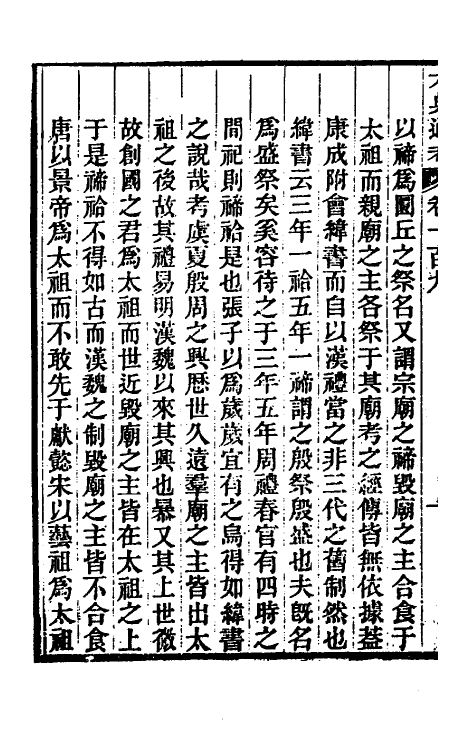 卷一百九
以禘爲圜丘之祭名又謂宗廟之禘毀廟之主合食于
太祖而親廟之主各祭于其廟考之經傳皆無依據葢
康成附會緯書而自以漢禮當之非三代之舊制然也
緯書云三年一祫五年一禘謂之殷祭殷盛也夫旣名
爲盛祭矣奚容待之于三年五年周禮春官有四時之
間祀則禘祫是也張子以爲歲歲宜有之烏得如緯書
之說哉考虞夏殷周之興歴世久遠羣廟之主皆出太
祖之後故其禮易明漢魏以來其興也暴又其上世微
故創國之君爲太祖而世近毀廟之主皆在太祖之上
于是禘祫不得如古而漢魏之制毀廟之主皆不合食
唐以景帝爲太祖而不敢先于獻懿朱以藝祖爲太祖